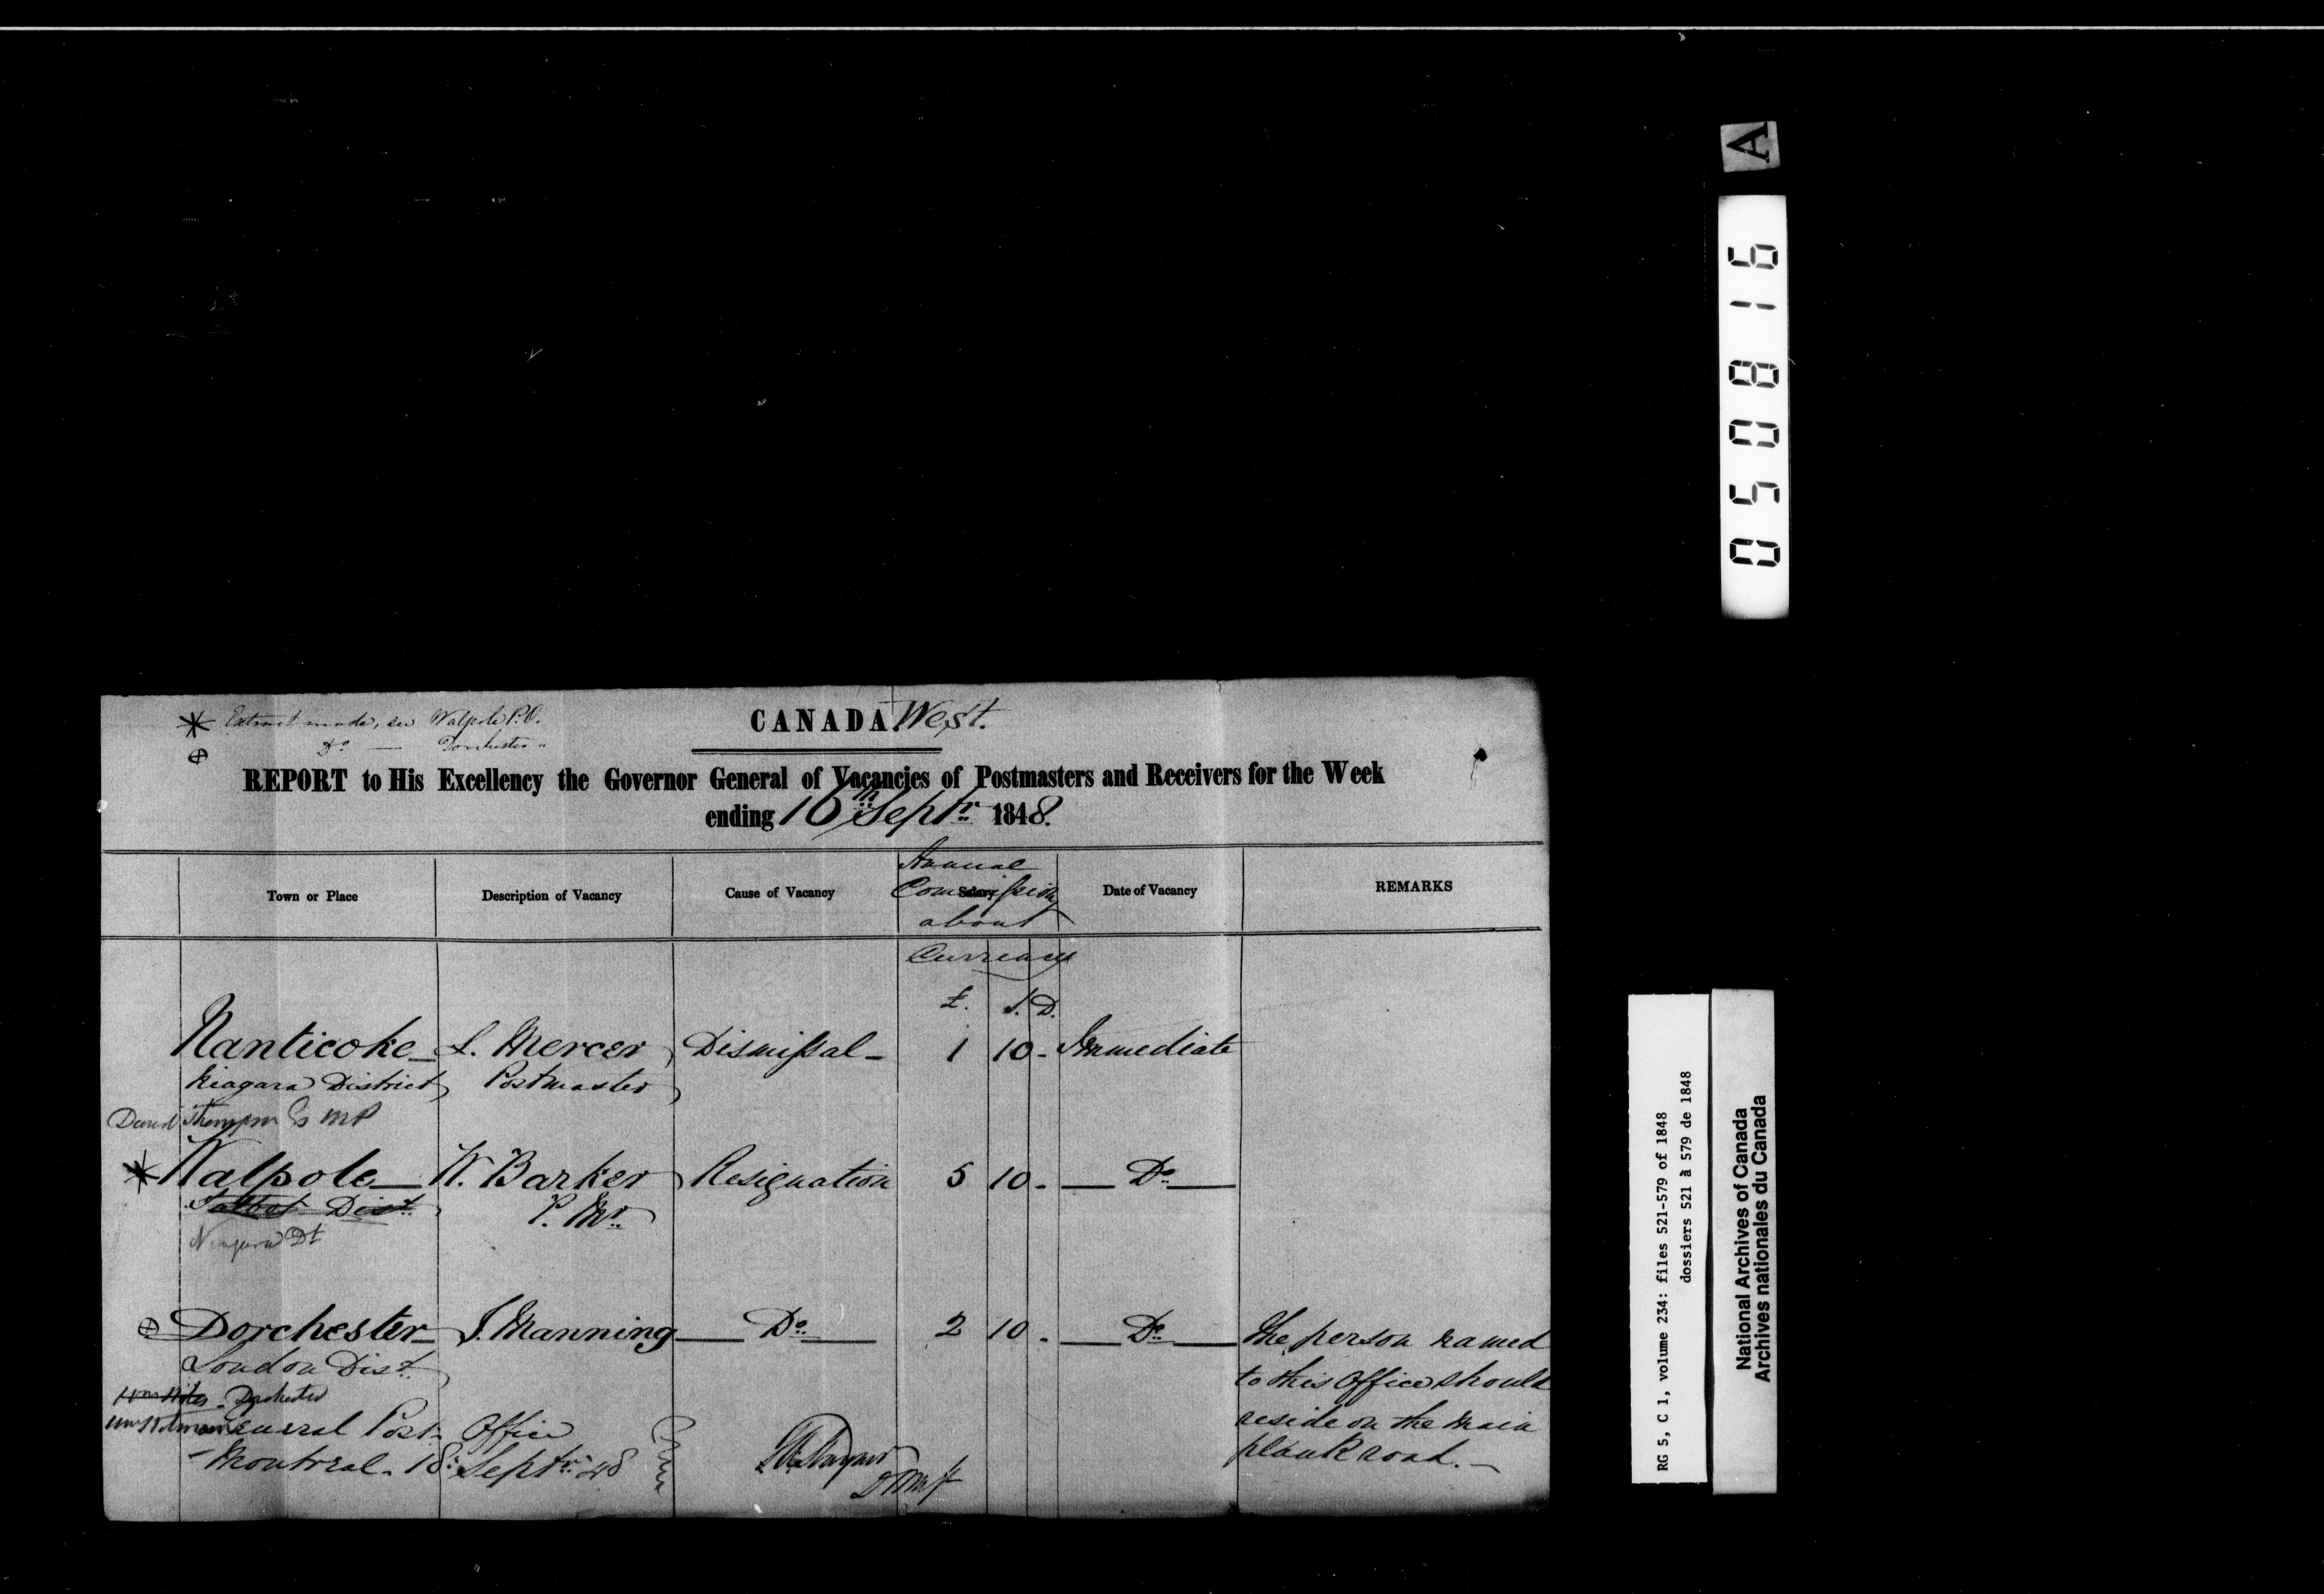 A
050816
* Extract made, see Walpole P.O.
⊕ Do — Dorchester "
CANADA West.
REPORT to His Excellency the Governor General of Vacancies of Postmasters and Receivers for the Week
ending 16th Septr 1848.
Town or Place Description of Vacancy Cause of Vacancy Annual Commission about Salary Date of Vacancy REMARKS
Currency
£. S. D.
Nanticoke L. Mercer Dismissal - 1 10 - Immediate
Niagara District Postmaster
David Thompson Es MP
* Walpole W. Barker Resignation 5 10 - Do
Talbot Dist. P. Mr
Niagara Dt
⊕ Dorchester J. Manning Do 2 10 - Do The person named
London Dist. to this Office should
Dorchester reside on the main
General Post Office plank road. -
Montreal. 18 Septr 48
DPMG
RG 5, C 1, volume 234: files 521-579 of 1848
dossiers 521 à 579 de 1848
National Archives of Canada
Archives nationales du Canada